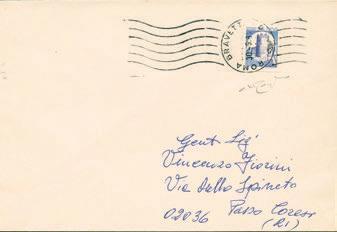 ROMA BRAVETTA
Gent Sig
Vincenzo Fiorini
Via dello Spineto
02036 Passo Corese
(RI)